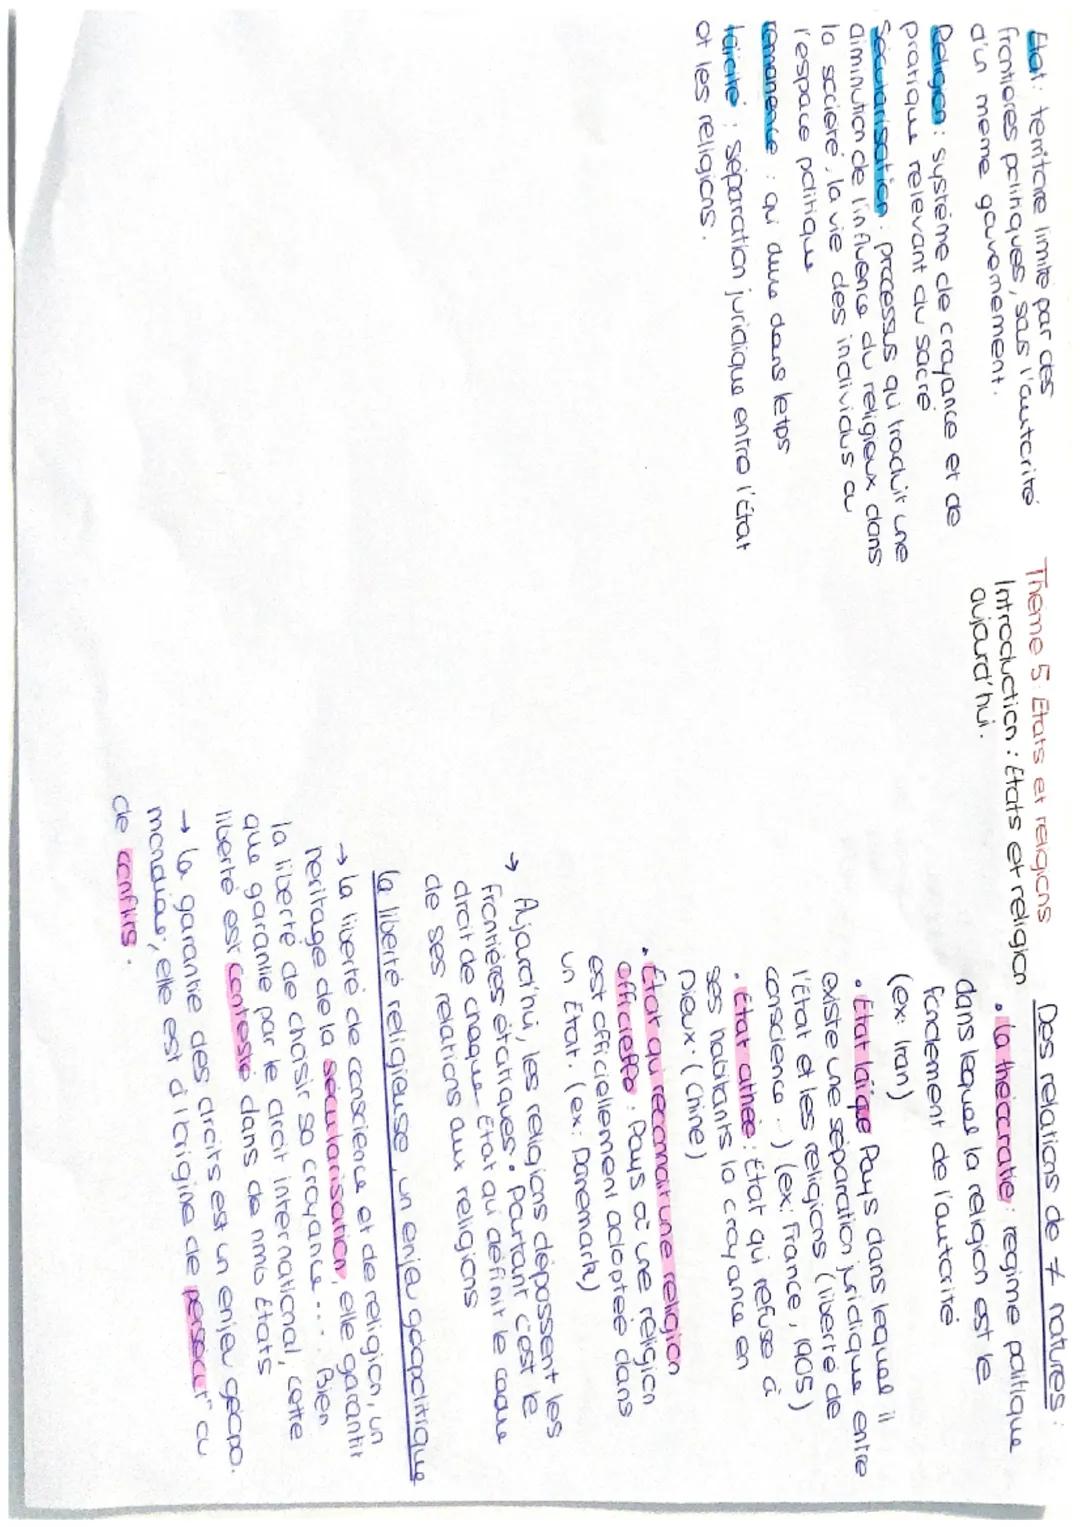 Thème 5 Etats et religions
Introduction : Etats et religion
aujourd'hui.
État : territoire limité par des
frontières politiques, sous l'autorité
d'un même gouvernement.
Religion : système de croyance et de
pratique relevant du sacré
Sécularisation : processus qui traduit une
diminution de l'influence du religieux dans
la société, la vie des individus ou
l'espace politique
rémanence : qui dure dans le tps
laïcité : séparation juridique entre l'État
et les religions.
Des relations de ≠ natures :
• la théocratie : régime politique
dans lequel la religion est le
fondement de l'autorité
(ex: Iran)
• État laïque Pays dans lequel il
existe une séparation juridique entre
l'État et les religions (liberté de
conscience ...) (ex: France, 1905)
• État athée : État qui refuse à
ses habitants la croyance en
Dieux. (Chine)
• État qui reconnait une religion
officielle : Pays où une religion
est officiellement adoptée dans
un État. (ex: Danemark)
→ Aujourd'hui, les religions dépassent les
frontières étatiques. Pourtant c'est le
droit de chaque État qui définit le cadre
de ses relations aux religions
La liberté religieuse, un enjeu géopolitique
→ la liberté de conscience et de religion, un
héritage de la sécularisation, elle garantit
la liberté de choisir sa croyance ... Bien
que garantie par le droit international, cette
liberté est contestée dans de nmb États
→ la garantie des droits est un enjeu géopo.
mondiaux, elle est à l'origine de persécut° ou
de conflits.